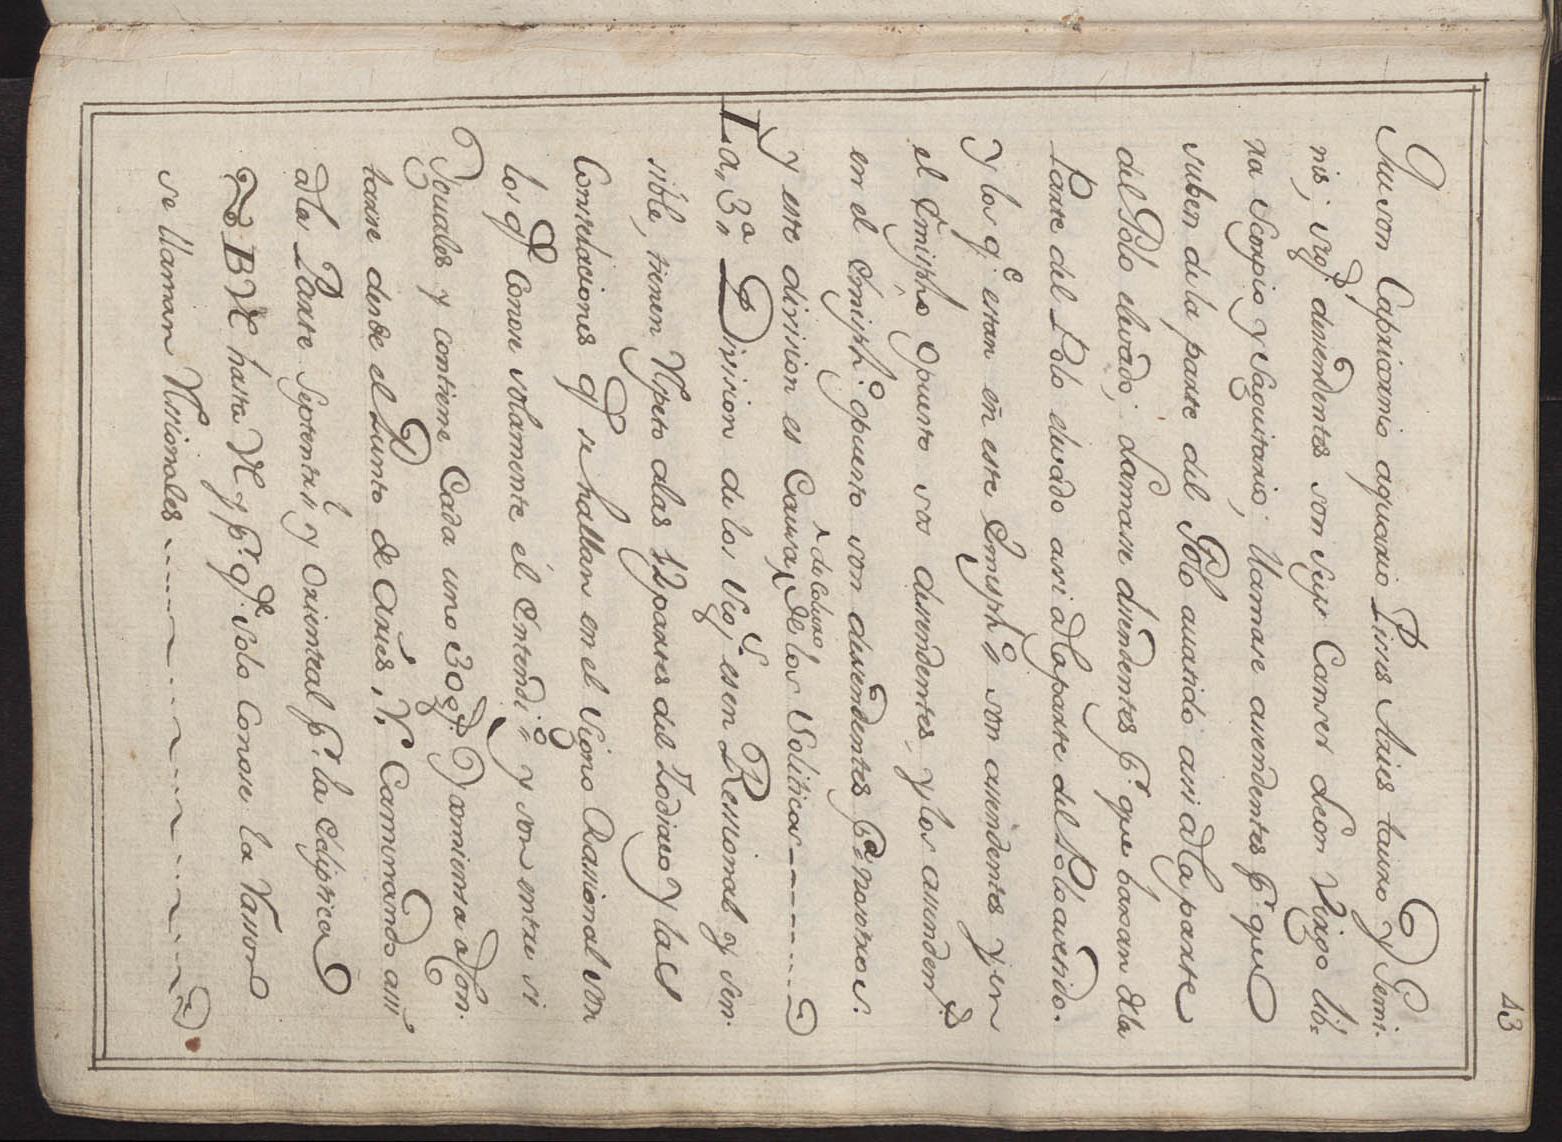 43
Que son Capricornio aquario Piscis Aries tauro y Gemi-
nis; desendentes son seys Cancer Leon Virgo lib-
ra Scorpio y Saquitario; llamase asendentes pr. que
suben de la parte del Polo austrido assi a la parte
del Polo elevado; Lamase desendentes pr. que baxan de la
Parte del Polo elevado assi a la parte del Polo avatido.
y los q.e estan en este Emisph.o son asendentes y en
el Emispho Opuesto son desendentes, y los asenden
en el Emisph.o opuesto son desendentes pa. nosotros.
y esta division es Causa, de los Solsticios
^ de Coluro
La, 3.a Division de los sig.s es en Racional y sen-
sible, tienen Respeto a las 12 partes del Zodiaco y las
Constelaciones q. se hallan en el signo Racional son
los q. Conose solamente el Entendi.o y son entre si
Iguales y contiene Cada uno 30 g. y comiensa a Con-
tarse desde el Punto de Aries, ♈ Caminando assi
a la Parte Septentri.l y Oriental pr. la Ecliptica
♉ ♊ hasta ♓ y pr. q. solo Conose la Rason
se llaman Rasionales